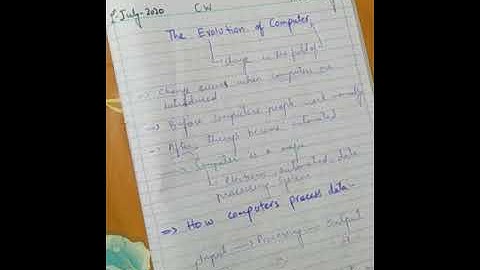 July-2020 CW
The Evolution of Computer
change in the field of
=> Change occurs when computers are
introduced
-> Before computers people work manually
-> After things became automated
-> Computer is a major
electronic, automated data
processing system
=> How computers process data-
Input -> Processing -> output